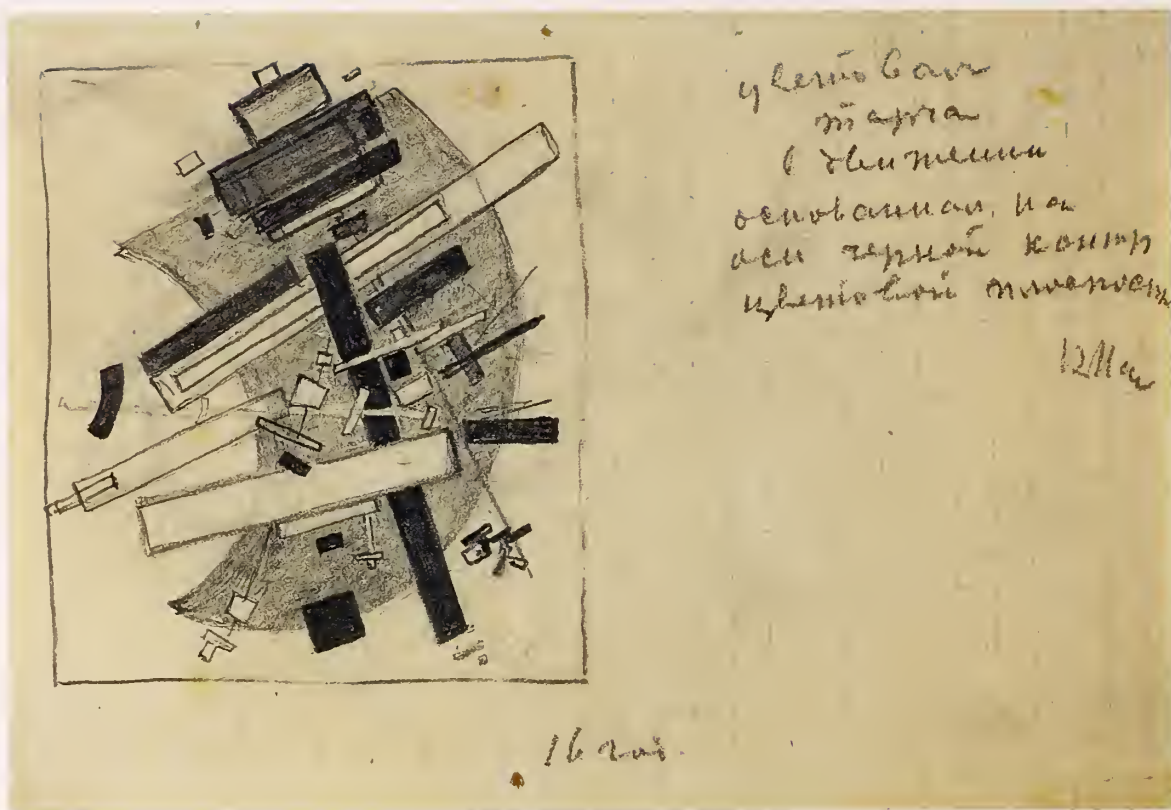 цветовая
масса
в движении
основанная на
оси черной контр
цветовой плоскости
КМал
16 год.